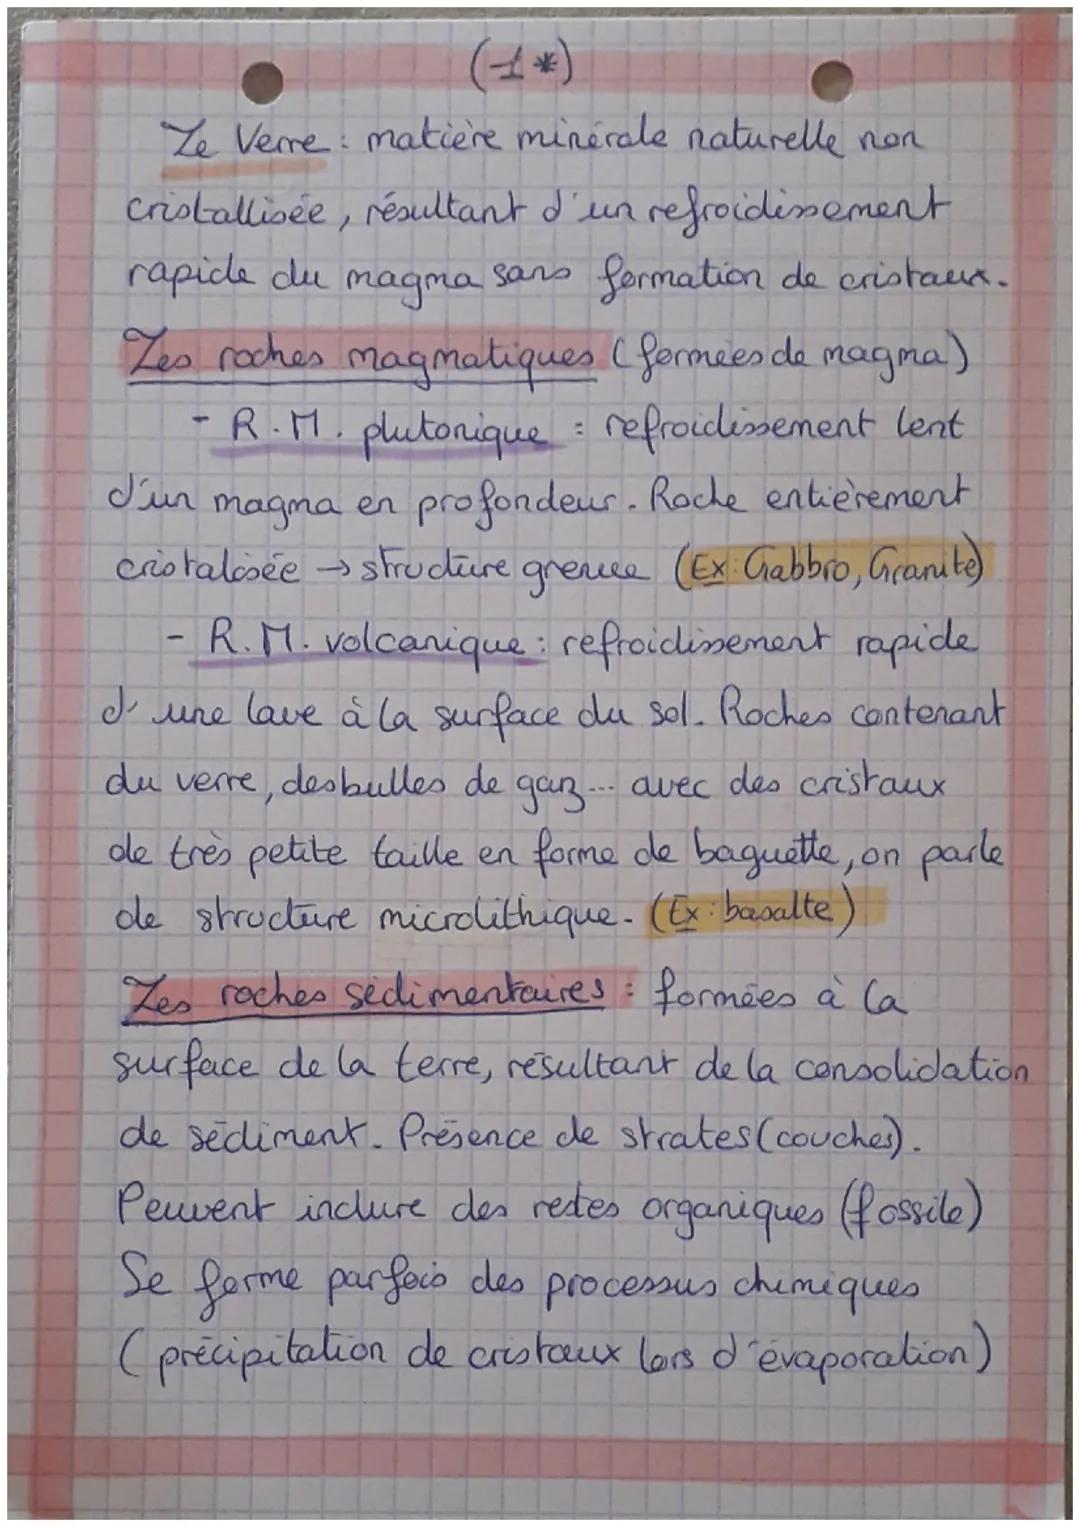 (1*)
Le Verre : matière minérale naturelle non
cristallisée, résultant d'un refroidissement
rapide du magma sans formation de cristaux.
Les roches magmatiques (formées de magma)
- R.M. plutonique : refroidissement lent
d'un magma en profondeur. Roche entièrement
cristalisée → structure grenue (Ex: Gabbro, Granite)
- R.M. volcanique : refroidissement rapide
d'une lave à la surface du sol. Roches contenant
du verre, des bulles de gaz... avec des cristaux
de très petite taille en forme de baguette, on parle
de structure microlithique. (Ex: basalte)
Les roches sédimentaires : formées à la
surface de la terre, résultant de la consolidation
de sédiment. Présence de strates (couches).
Peuvent inclure des restes organiques (fossile)
Se forme parfois des processus chimiques
(précipitation de cristaux lors d'évaporation)